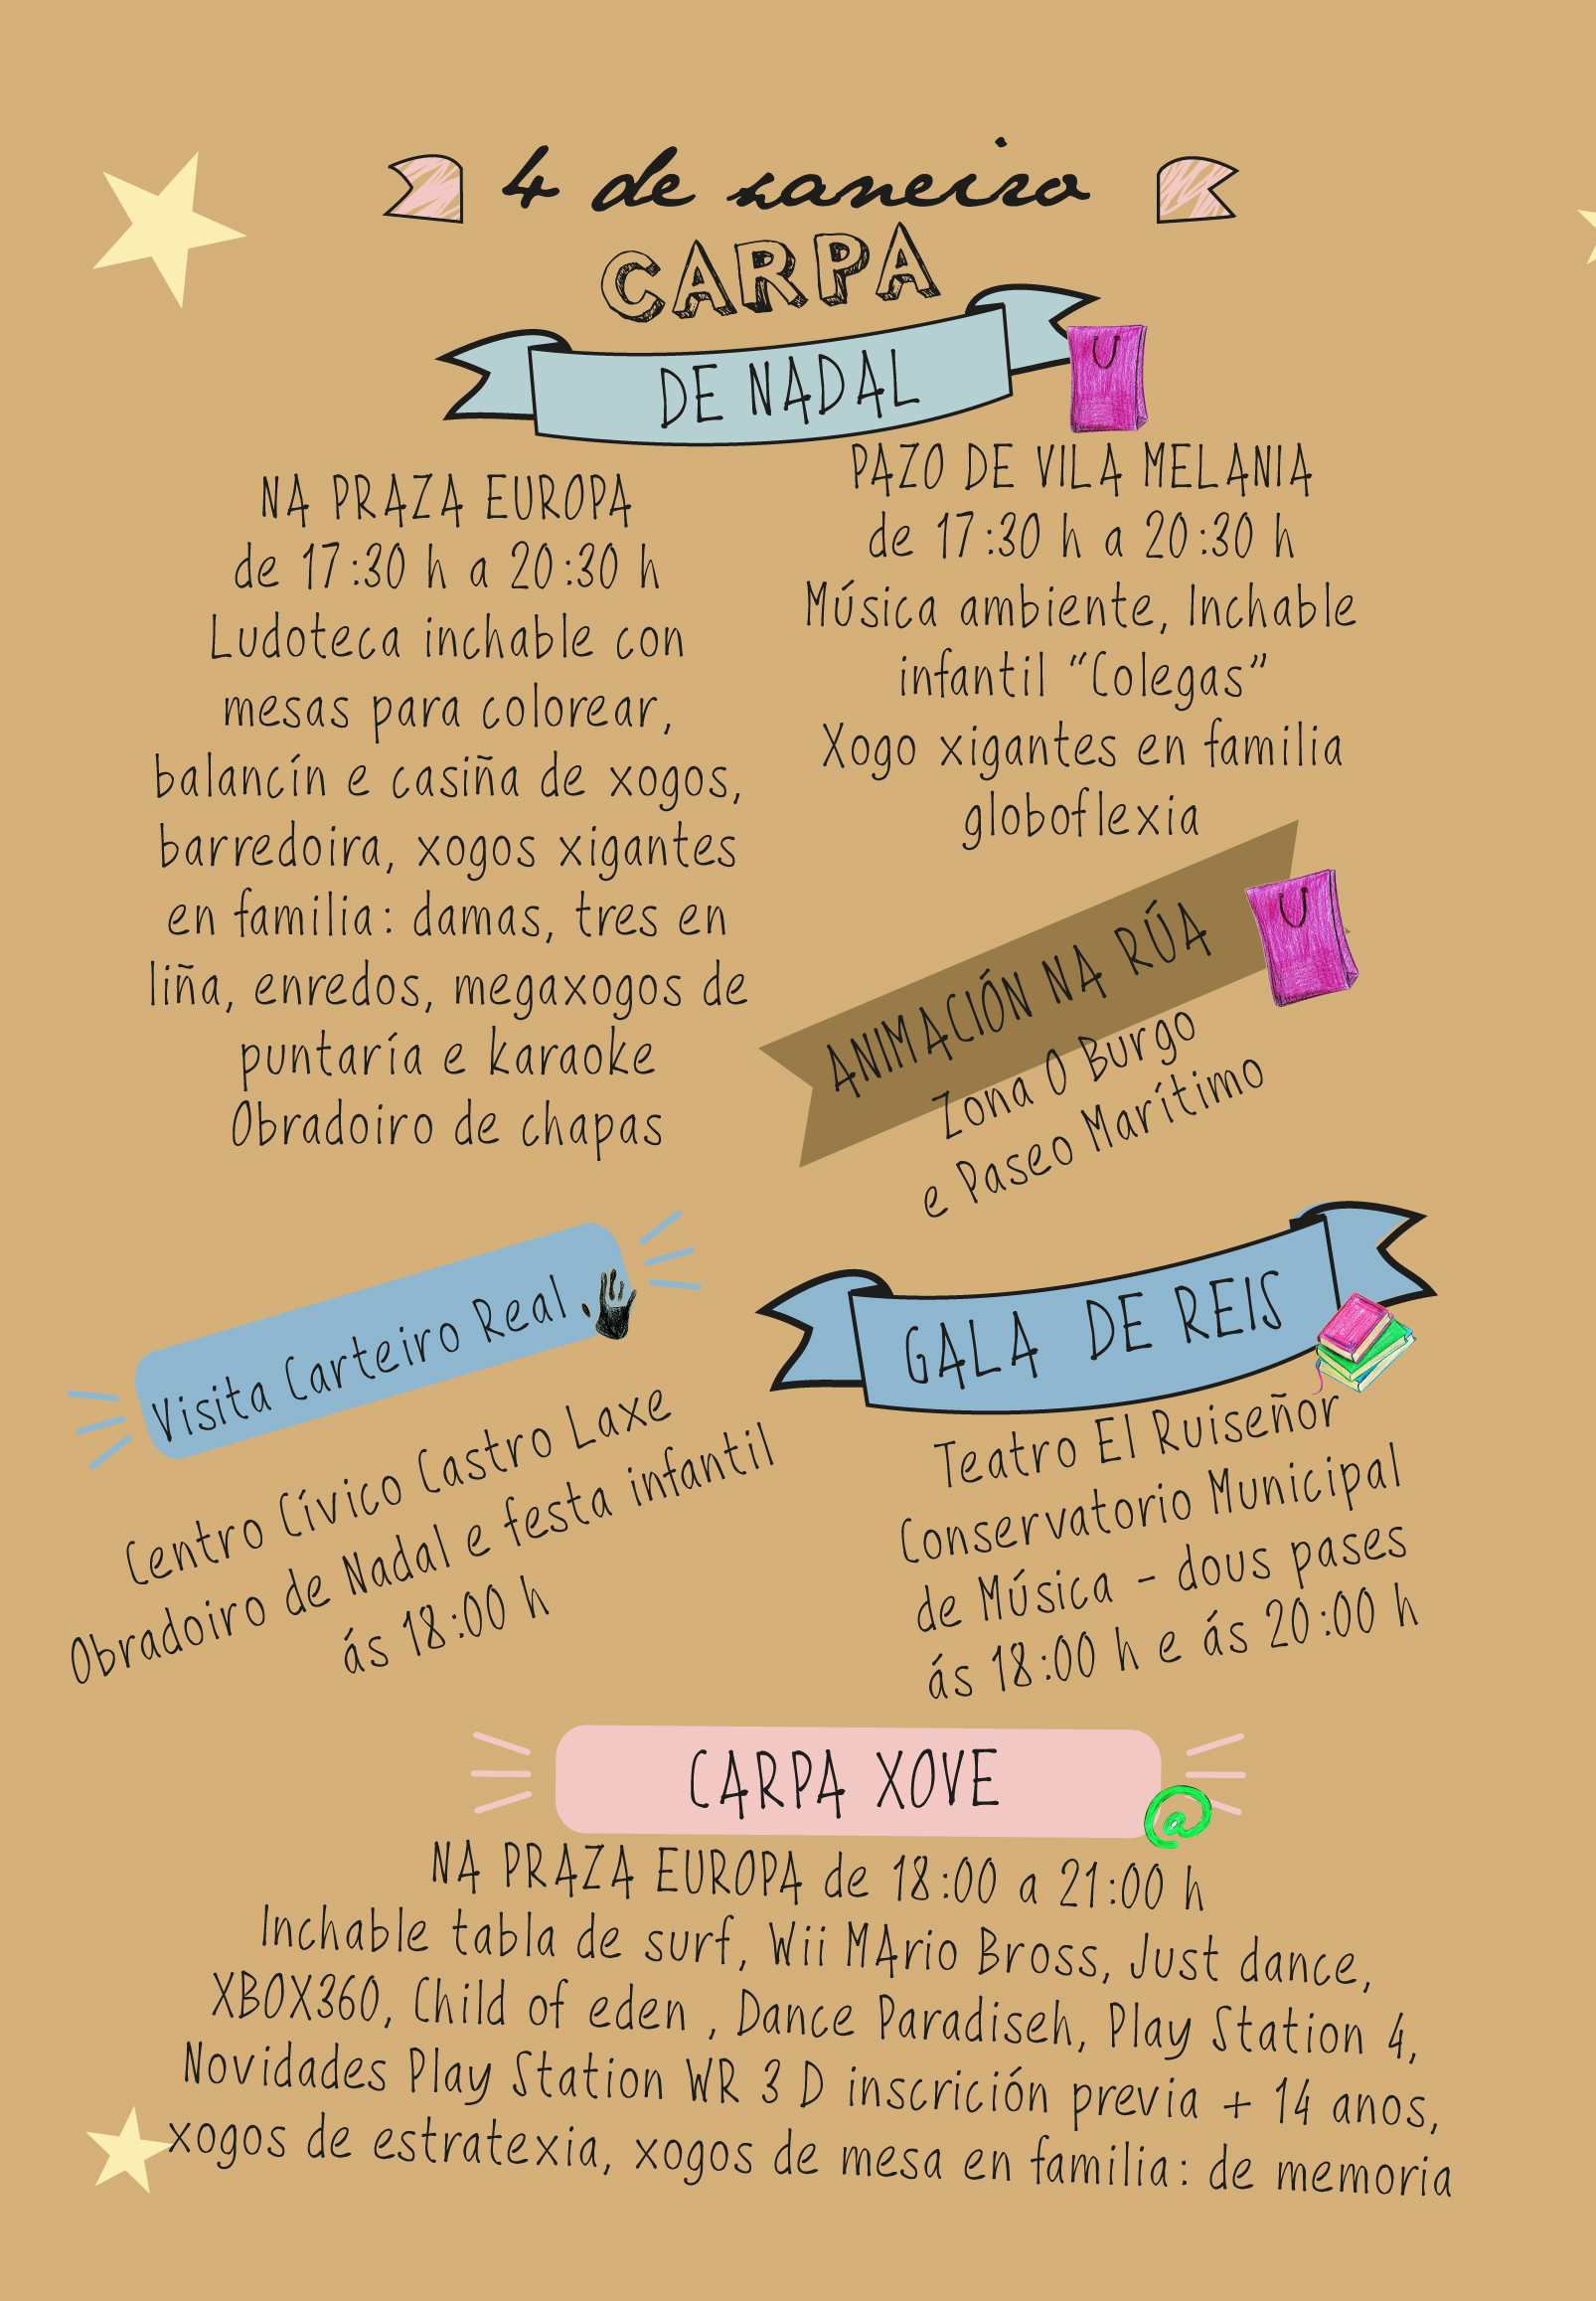 4 de xaneiro
CARPA
DE NADAL
NA PRAZA EUROPA
de 17:30 h a 20:30 h
Ludoteca inchable con
mesas para colorear,
balancín e casiña de xogos,
barredoira, xogos xigantes
en familia: damas, tres en
liña, enredos, megaxogos de
puntaría e karaoke
Obradoiro de chapas
PAZO DE VILA MELANIA
de 17:30 h a 20:30 h
Música ambiente, Inchable
infantil “Colegas”
Xogo xigantes en familia
globoflexia
ANIMACIÓN NA RÚA
Zona O Burgo
e Paseo Marítimo
Visita Carteiro Real
Centro Cívico Castro Laxe
Obradoiro de Nadal e festa infantil
ás 18:00 h
GALA DE REIS
Teatro El Ruiseñor
Conservatorio Municipal
de Música - dous pases
ás 18:00 h e ás 20:00 h
CARPA XOVE
@
NA PRAZA EUROPA de 18:00 a 21:00 h
Inchable tabla de surf, Wii MArio Bross, Just dance,
XBOX360, Child of eden , Dance Paradiseh, Play Station 4,
Novidades Play Station WR 3 D inscrición previa + 14 anos,
xogos de estratexia, xogos de mesa en familia: de memoria